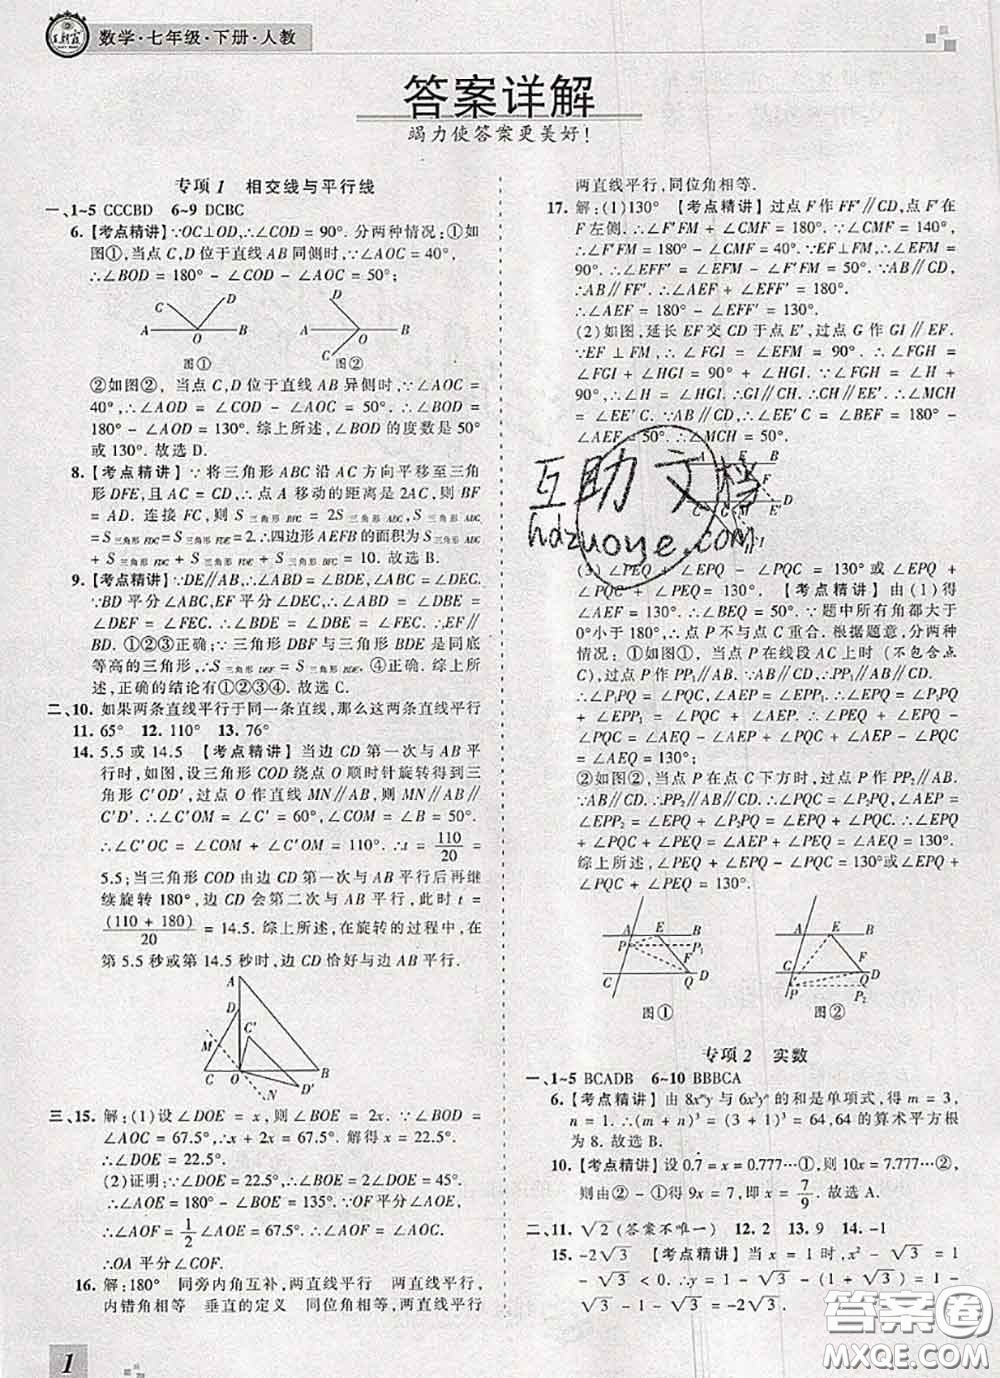 王朝霞
数学·七年级·下册·人教
答案详解
竭力使答案更美好！
专项1 相交线与平行线
一、1~5 CCCBD 6~9 DCBC
6.【考点精讲】∵OC⊥OD,∴∠COD = 90°. 分两种情况:①如
图①,当点 C,D 位于直线 AB 同侧时,∵∠AOC = 40°,
∴∠BOD = 180° - ∠COD - ∠AOC = 50°;
C D
A O B
图①
D
A O B
C
图②
②如图②, 当点 C,D 位于直线 AB 异侧时,∵∠AOC =
40°,∴∠AOD = ∠COD - ∠AOC = 50°. ∴∠BOD =
180° - ∠AOD = 130°. 综上所述,∠BOD 的度数是 50°
或 130°. 故选 D.
8.【考点精讲】∵ 将三角形 ABC 沿 AC 方向平移至三角
形 DFE,且 AC = CD,∴点 A 移动的距离是 2AC,则 BF
= AD. 连接 FC,则 S三角形 BFC = 2S三角形 ABC,S三角形 ABC
= S三角形 FDC = S三角形 FDE = 2. ∴四边形 AEFB 的面积为 S三角形 ABC
+ S三角形 FDE + S三角形 FDC + S三角形 BFC = 10. 故选 B.
9.【考点精讲】∵DE∥AB,∴∠ABD = ∠BDE,∠ABC = ∠DEC.
∵BD 平分∠ABC,EF 平分∠DEC,∴∠ABD = ∠DBE =
∠DEF = ∠FEC. ∴∠BDE = ∠DBE = ∠FEC. ∴EF∥
BD. ①②③正确;∵三角形 DBF 与三角形 BDE 是同底
等高的三角形,∴S三角形 DBF = S三角形 BDE,④正确. 综上所
述,正确的结论有①②③④. 故选 C.
二、10. 如果两条直线平行于同一条直线,那么这两条直线平行
11. 65° 12. 110° 13. 76°
14. 5.5 或 14.5 【考点精讲】当边 CD 第一次与 AB 平
行时,如图,设三角形 COD 绕点 O 顺时针旋转得到三
角形 C′OD′,过点 O 作直线 MN∥AB,∴MN∥AB∥
C′D′. ∴∠C′OM = ∠C′ = 60°,∠COM = ∠B = 50°.
∴∠C′OC = ∠COM + ∠C′OM = 110°. ∴t = 110/20 =
5.5;当三角形 COD 由边 CD 第一次与 AB 平行后再继
续旋转 180°,边 CD 会第二次与 AB 平行,此时 t =
(110 + 180)/20 = 14.5. 综上所述,在旋转的过程中,在
第 5.5 秒或第 14.5 秒时,边 CD 恰好与边 AB 平行.
A
D
M C′
C O B
N D′
三、15. 解:(1)设∠DOE = x,则∠BOE = 2x. ∵∠BOD =
∠AOC = 67.5°,∴x + 2x = 67.5°. 解得 x = 22.5°.
∴∠DOE = 22.5°.
(2)证明:∵∠DOE = 22.5°,∴∠BOE = 2∠DOE = 45°.
∴∠AOE = 180° - ∠BOE = 135°. ∵OF 平分∠AOE,
∴∠AOF = 1/2∠AOE = 67.5°. ∴∠AOF = ∠AOC.
∴OA 平分∠COF.
16. 解:180° 同旁内角互补,两直线平行 两直线平行,
内错角相等 垂直的定义 同位角相等,两直线平行
1
两直线平行,同位角相等.
17. 解:(1)130° 【考点精讲】过点 F 作 FF′∥CD,点 F′在
F 左侧. ∴∠F′FM + ∠CMF = 180°. ∵∠CMF = 140°,
∴∠F′FM = 180° - ∠CMF = 40°. ∵EF⊥FM,∴∠EFM =
90°. ∴∠EFF′ = ∠EFM - ∠F′FM = 50°. ∵AB∥CD,
∴AB∥FF′. ∴∠AEF + ∠EFF′ = 180°.
∴∠AEF = 180° - ∠EFF′ = 130°.
(2)如图,延长 EF 交 CD 于点 E′,过点 G 作 GI∥EF.
∵EF⊥FM,∴∠FGI = ∠EFM = 90°. ∴∠FGH =
∠FGI + ∠HGI = 90° + ∠HGI. ∵∠FGH = ∠H +
90°,∴∠H = ∠HGI. ∴GI∥CH. ∴CH∥EE′. ∴∠MCH
= ∠EE′C. ∵AB∥CD,∴∠EE′C = ∠BEF = 180° -
∠AEF = 50°. ∴∠MCH = 50°.
(3)∠PEQ + ∠EPQ - ∠PQC = 130°或∠EPQ +
∠PQC + ∠PEQ = 130° 【考点精讲】由(1)得
∠AEF = 130°. ∴∠BEQ = 50°. ∵题中所有角都大于
0°小于 180°,∴点 P 不与点 C 重合. 根据题意,分两种
情况: ①如图①,当点 P 在线段 AC 上时(不包含点
C),过点 P 作 PP₁∥AB. ∵AB∥CD,∴PP₁∥AB∥CD.
∴∠P₁PQ = ∠PQC,∠AEP = ∠EPP₁. ∴∠EPQ = ∠P₁PQ
+ ∠EPP₁ = ∠PQC + ∠AEP. ∴∠PEQ + ∠EPQ -
∠PQC = ∠AEQ - ∠AEP + ∠PQC + ∠AEP - ∠PQC =
∠AEQ = 130°;
②如图②,当点 P 在点 C 下方时,过点 P 作 PP₂∥AB.
∵AB∥CD,∴PP₂∥AB∥CD. ∴∠PQC = ∠P₂PQ,∠AEP =
∠EPP₂ = ∠EPQ + ∠P₂PQ = ∠EPQ + ∠PQC.
∴∠PEQ + ∠EPQ + ∠PQC = ∠AEQ = 130°.
综上所述,∠PEQ + ∠EPQ - ∠PQC = 130°或∠EPQ
+ ∠PQC + ∠PEQ = 130°.
A E B
P P₁
F
C Q D
图①
A E B
F
C Q D
P P₂
图②
专项2 实数
一、1~5 BCADB 6~10 BBBCA
6.【考点精讲】由 8xᵐy 与 6x³yⁿ 的和是单项式,得 m = 3,
n = 1. ∴(m + n)³ = (3 + 1)³ = 64,64 的算术平方根
为 8. 故选 B.
10.【考点精讲】设 0.7̇ = x = 0.777⋯①,则 10x = 7.777⋯②,
则由② - ①得 9x = 7,即 x = 7/9. 故选 A.
二、11. √2(答案不唯一) 12. 2 13. 9 14. -1
15. -2√3 【考点精讲】当 x = 1 时,x² - √3 = 1 -
√3 < 0. ∴
互助文档
hdzuoye.com
答案圈
MXQE.COM